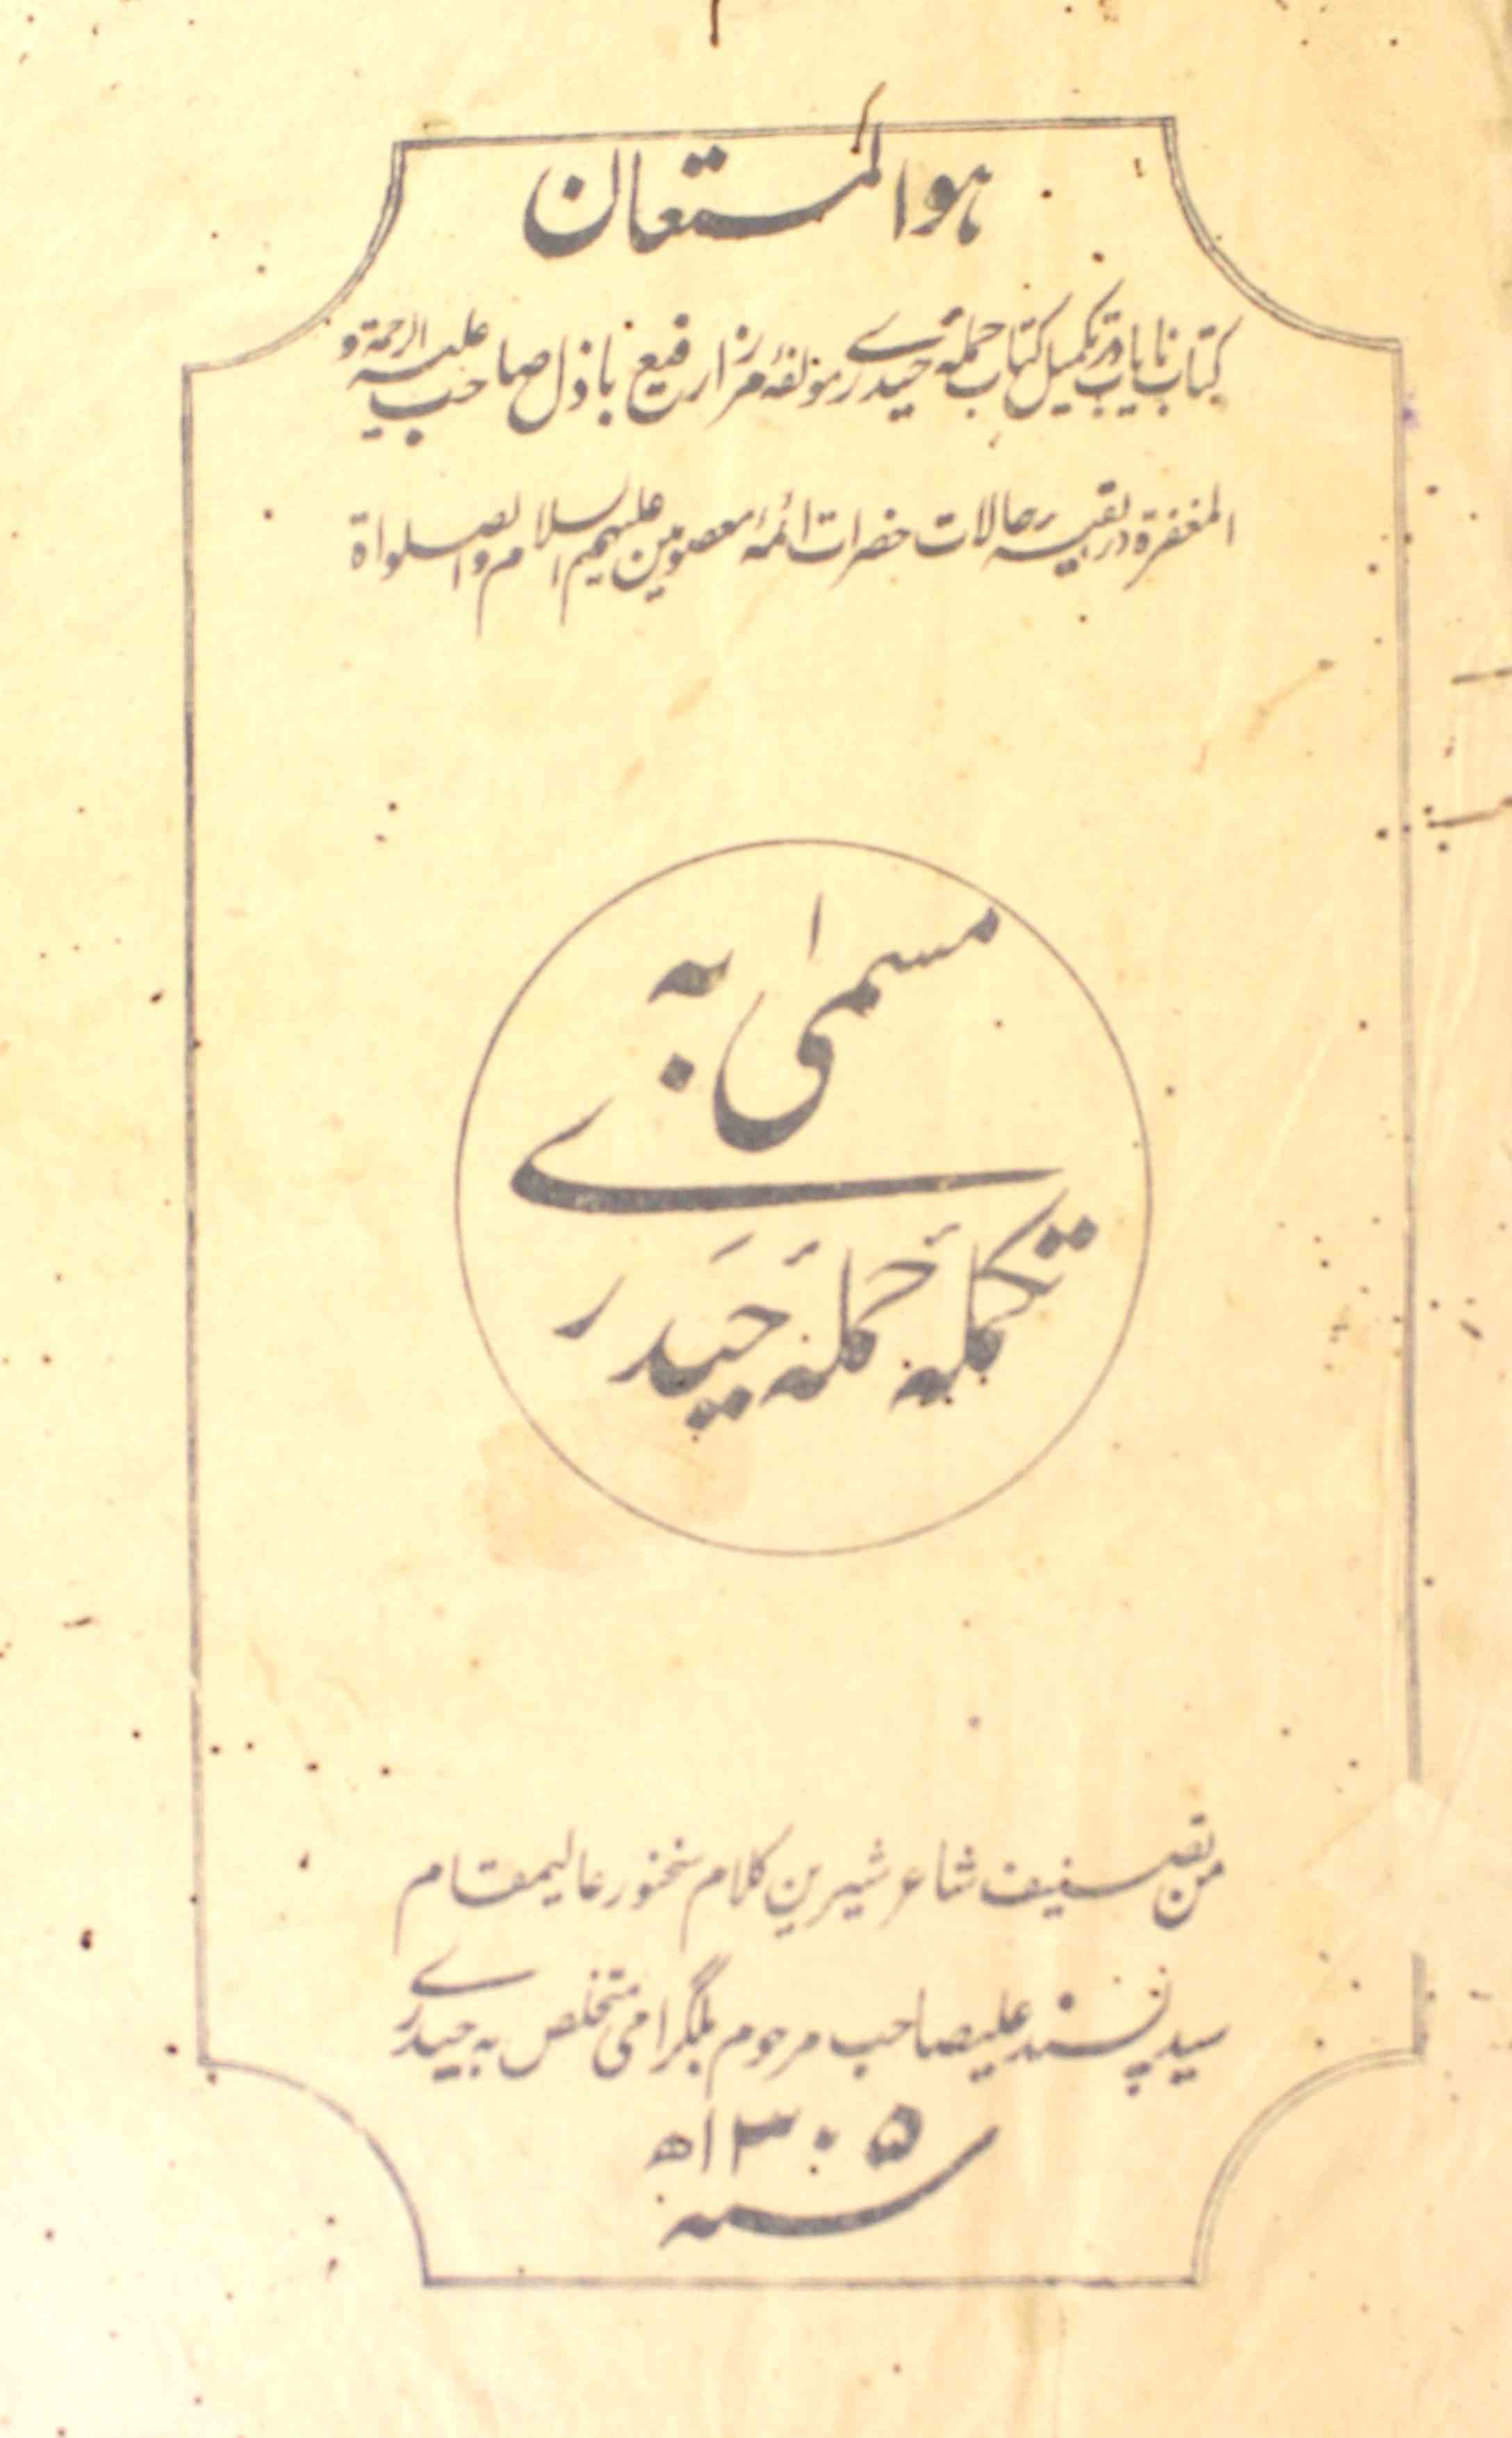 ہوالمستعان
کتاب نایاب در تکمیل کتاب حملۂ حیدرے مولفۂ مرزا رفیع باذل صاحب علیہ الرحمۃ و
المغفرۃ در بقیہ حالات حضرات ائمۂ معصومین علیہم السلام والصلواۃ
مسمیٰ بہ
تکملہ حملۂ حیدرے
من تصنیف شاعر شیرین کلام سخنور عالیمقام
سید پسند علیصاحب مرحوم بلگرامی متخلص بہ حیدرے
سنہ ۱۳۰۵ھ